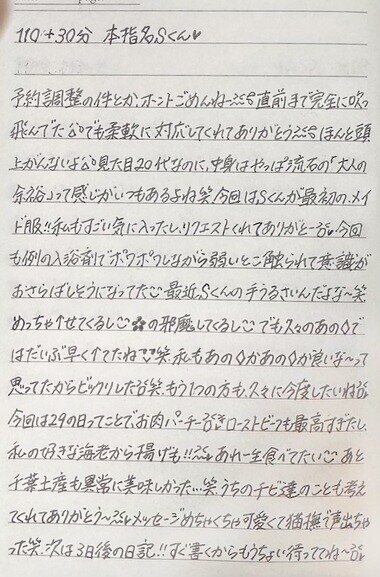 110+30分 本指名Sくん♥
予約調整の件とか、ホントごめんね 直前まで完全に吹っ
飛んでた でも柔軟に対応してくれてありがとう ほんと頭
上がんないよ 見た目20代なのに、中身はやっぱ流石の「大人の
余裕」って感じがいつもあるよね笑 今回はSくんが最初の、メイ
ド服!!私もすごい気に入ったし、リクエストくれてありがと〜 今回
も例の入浴剤でポワポワしながら弱いとこ触られて意識が
おさらばしそうになってた 最近、Sくんの手うるさいんだよな〜笑
めっちゃ↑せてくるし の邪魔してくるし でも久々のあの◇で
はだいぶ早く↑てたね 笑 私もあの◇かあの◇が良いな〜って
思ってたからビックリした 笑 もう1つの方も、久々に今度したいね
今回は29の日ってことで、お肉パーチー ローストビーフも最高すぎたし、
私の好きな海老から揚げも!! あれ一生食べてたい あと
千葉土産も異常に美味しかった…笑 うちのチビ達のことも考え
てくれてありがとう〜 メッセージめちゃくちゃ可愛くて猫撫で声出ちゃ
った笑 次は3日後の日記!!すぐ書くからもうちょい待っててね〜